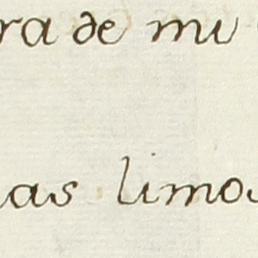 ra de mi
as limos